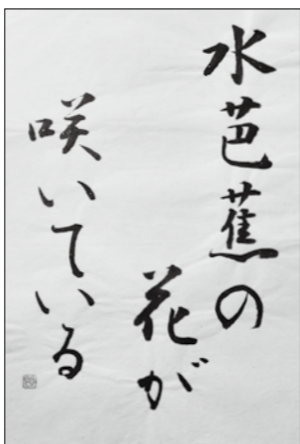 水芭蕉の
花が
咲いている